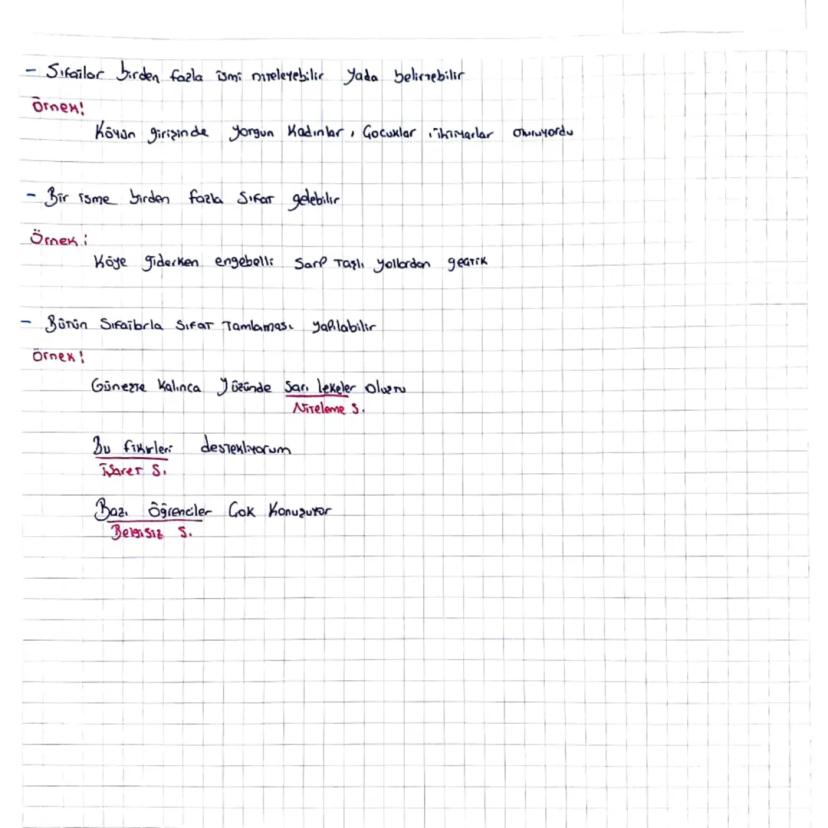 - Sıfatlar birden fazla ismi niteleyebilir yada belirtebilir
Örnek!
Köyün girişinde yorgun kadınlar, Çocuklar, ihtiyarlar oturuyordu
- Bir isme birden fazla sıfat gelebilir
Örnek:
Köye giderken engebelli sarp taşlı yollardan geçtik
- Bütün sıfatlarla sıfat tamlaması yapılabilir
Örnek!
Güneşte kalınca yüzünde sarı lekeler oluştu
Niteleme S.
Bu fikirleri destekliyorum
İşaret S.
Bazı öğrenciler Çok konuşuyor
Belgisiz S.